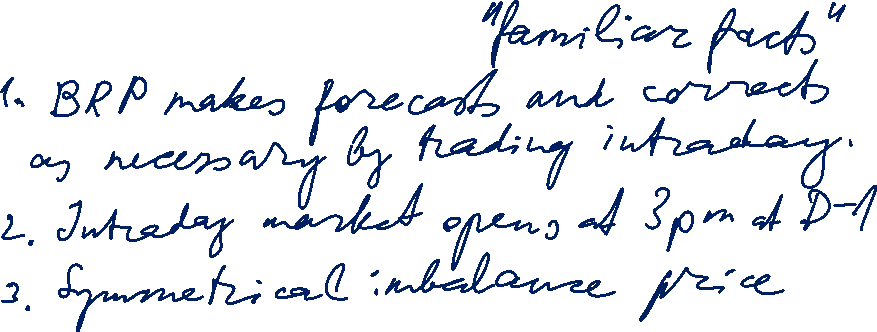 "familiar facts"
1. BRP makes forecasts and corrects
as necessary by trading intraday.
2. Intraday market opens at 3pm at D-1
3. Symmetrical imbalance price